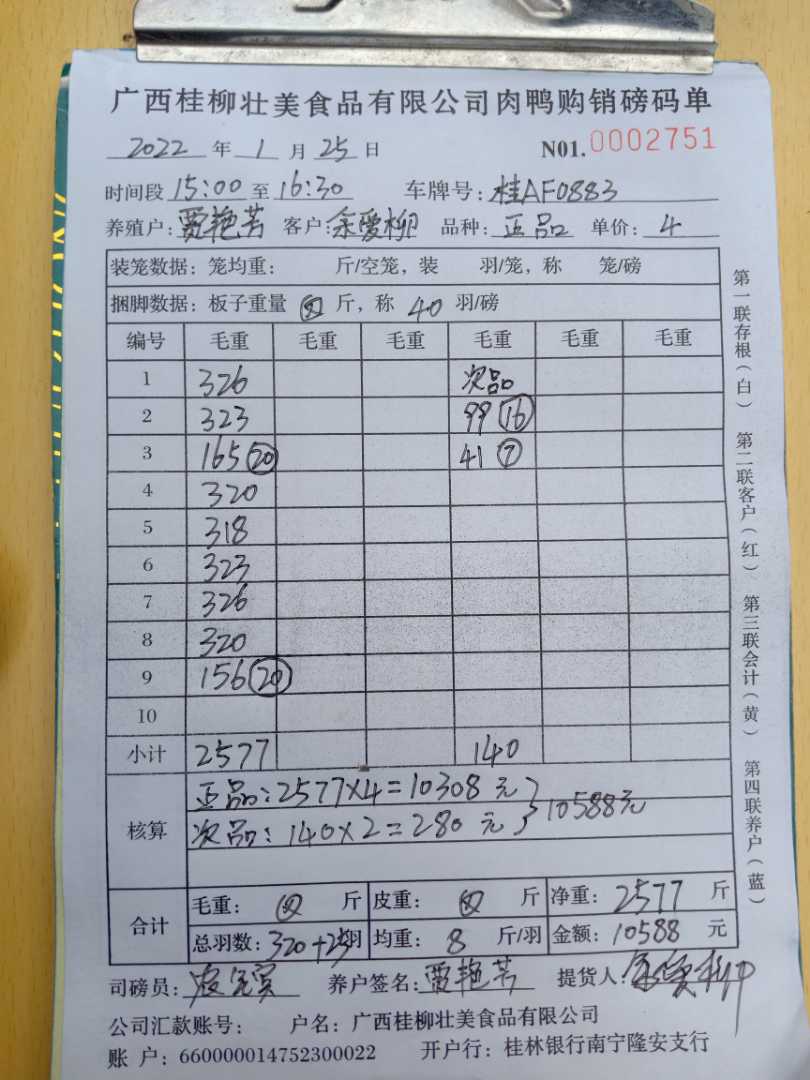 广西桂柳壮美食品有限公司肉鸭购销磅码单
2022 年 1 月 25 日 N01. 0002751
时间段 15:00 至 16:30 车牌号: 桂AF0883
养殖户: 贾艳芳 客户: 余爱柳 品种: 正品 单价: 4
装笼数据: 笼均重: 斤/空笼, 装 羽/笼, 称 笼/磅
捆脚数据: 板子重量 斤, 称 40 羽/磅
编号 毛重 毛重 毛重 毛重 毛重 毛重
1 326 次品
2 323 99 16
3 165 20 41 7
4 320
5 318
6 323
7 326
8 320
9 156 20
10
小计 2577 140
核算
正品: 2577×4=10308 元
次品: 140×2=280 元 } 10588元
合计
毛重: 斤 皮重: 斤 净重: 2577 斤
总羽数: 320+23羽 均重: 8 斤/羽 金额: 10588 元
司磅员: 养户签名: 贾艳芳 提货人:
公司汇款账号: 户名: 广西桂柳壮美食品有限公司
账 户: 660000014752300022 开户行: 桂林银行南宁隆安支行
第一联存根(白) 第二联客户(红) 第三联会计(黄) 第四联养户(蓝)